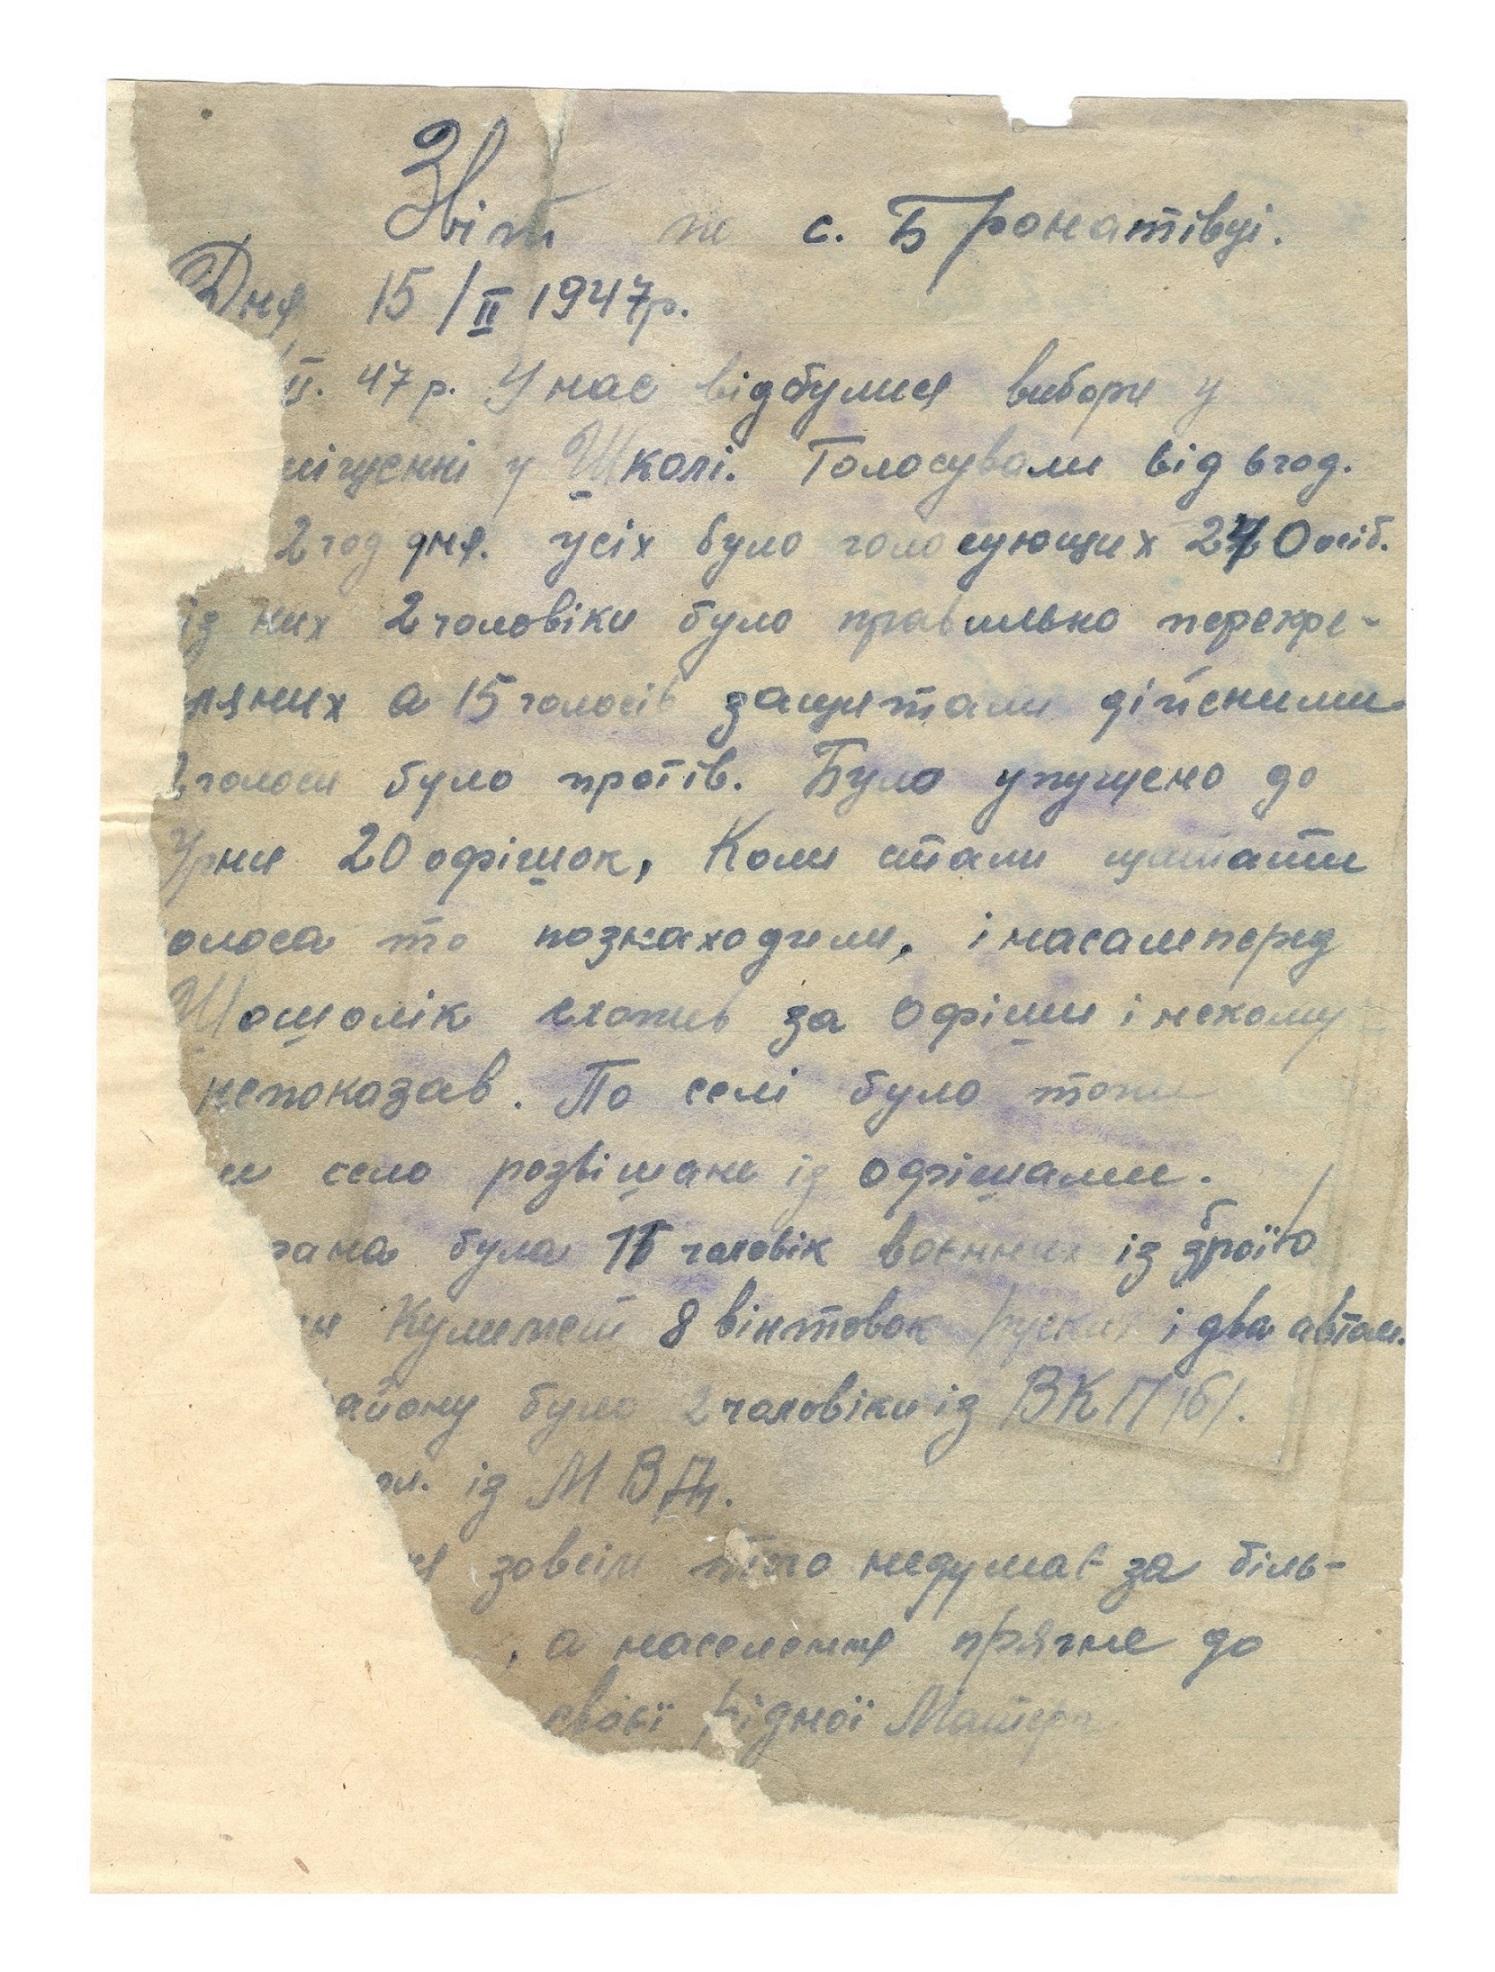 Звіт по с. Бронатівці.
Дня 15/II 1947р.
II. 47 р. У нас відбулися вибори у
міщенні у Школі. Голосували від 6 год.
2 год дня. усіх було голосующих 240 осіб.
із них 2 чоловіки було правильно перекре-
ляних а 15 голосів защитали дійсними
голоси було протів. Було упущено до
Урни 20 офішок, Коли стали щитати
олоса то познаходили, і насамперед
Шошолік схопив за офіши і некому
непоказав. По селі було
село розвішане із офішами.
рана була чоловік воєнних із зброїю
Кулимет 8 вінтовок руских і два автом.
айону було 2 чоловіки із ВКП/б/.
ол. із МВД.
зовсім недумає за біль-
, а населення прягне до
своєї рідної Матери